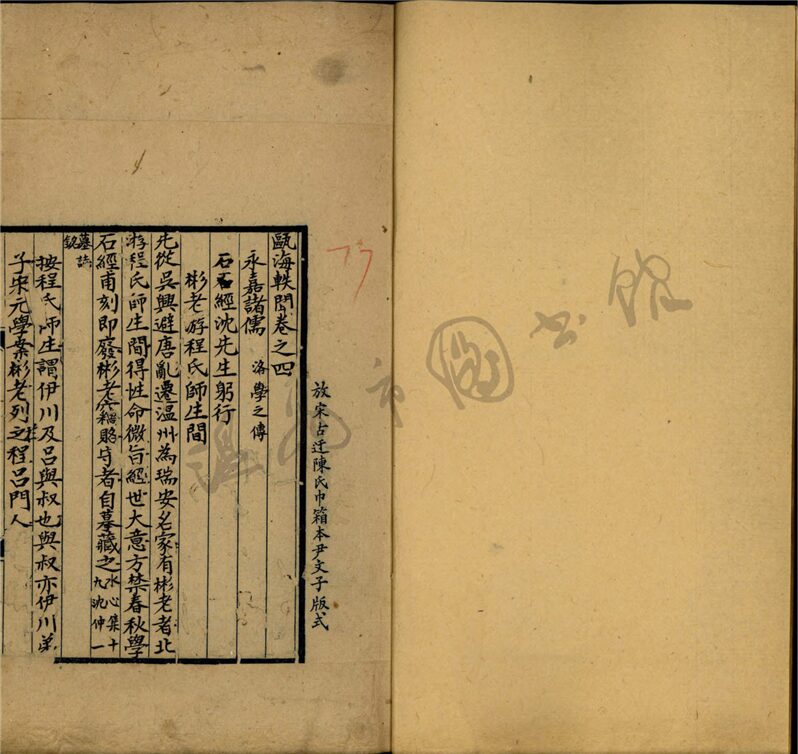 放宋古迂陳氏巾箱本尹文子版式
甌海軼聞卷之四
永嘉諸儒 洛學之傳
石經沈先生躬行
彬老游程氏師生間
先從吳興避唐亂遷温州為瑞安名家有彬老者北
游程氏師生間得性命微旨經世大意方禁春秋學
石經甫刻即廢彬老竊賂守者自摹藏之水心集十
九沈仲一
墓誌
銘
按程氏師生謂伊川及呂與叔也與叔亦伊川弟
子宋元學案彬老列之程呂門人
市圖書館